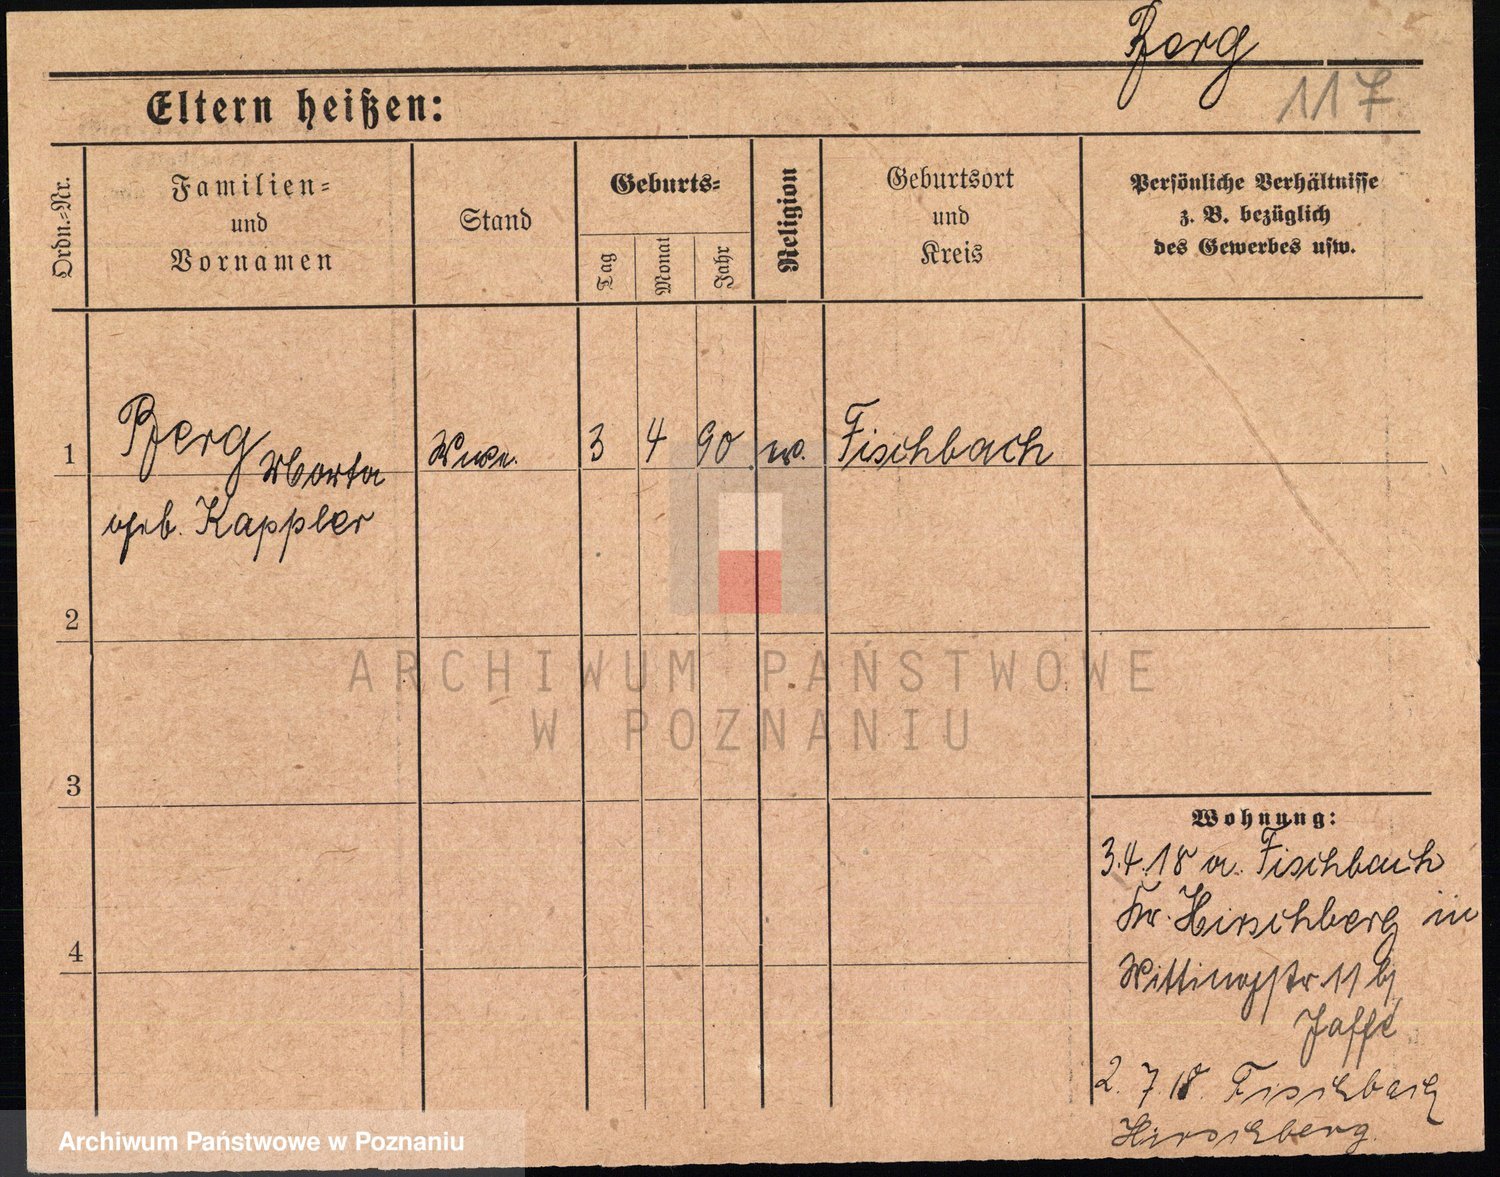 Berg
117
Eltern heißen:
Ordn.-Nr.
Familien-
und
Vornamen
Stand
Geburts-
Tag
Monat
Jahr
Religion
Geburtsort
und
Kreis
Persönliche Verhältnisse
z. B. bezüglich
des Gewerbes usw.
1 Berg Marta 3 4 90 Fischbach
geb. Kappler
2
3
4
Wohnung:
3.4.18 a. Fischbach
Kr. Hirschberg in
11 b/
Jaffé
2.7.18. Fischbach
Hirschberg.
ARCHIWUM PAŃSTWOWE
W POZNANIU
Archiwum Państwowe w Poznaniu